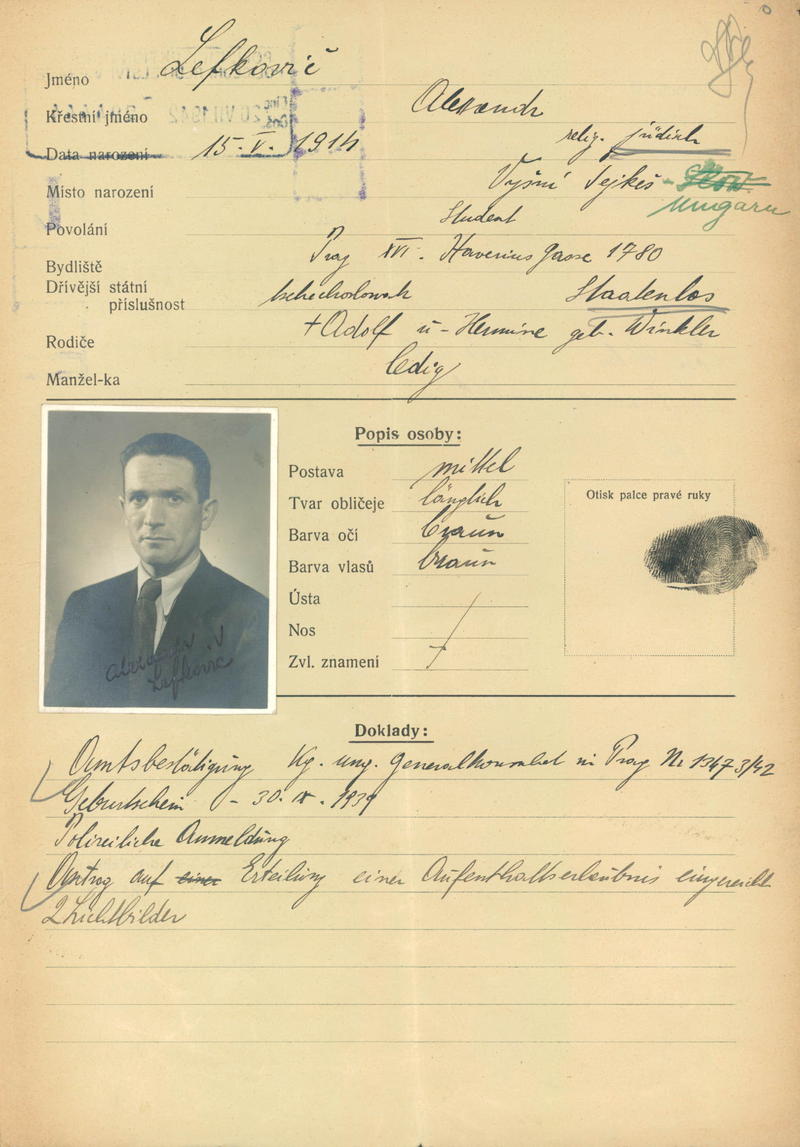 Jméno Lefkovič
Křestní jméno Alexandr
Data narození 15. V. 1914 relig. jüdisch
Místo narození Vyšní Sejkeš - Slow.
Ungarn
Povolání Student
Bydliště Prag XVI. Xaverius Gasse 1780
Dřívější státní příslušnost tschechoslowak Staatenlos
Rodiče +Adolf u- Hermine geb. Winkler
Manžel-ka ledig
Popis osoby:
Postava mittel
Tvar obličeje länglich
Barva očí braun
Barva vlasů braun
Ústa
Nos
Zvl. znamení
Otisk palce pravé ruky
Alexandr
Lefkovic
Doklady:
Amtsbestätigung Kg. ung. Generalkonsulat in Prag Nr 1347 3/42
Geburtschein - 30. IX. 1939
Polizeiliche Anmeldung
Antrag auf einer Erteilung einer Aufenthaltserlaubnis eingereicht
2 Lichtbilder